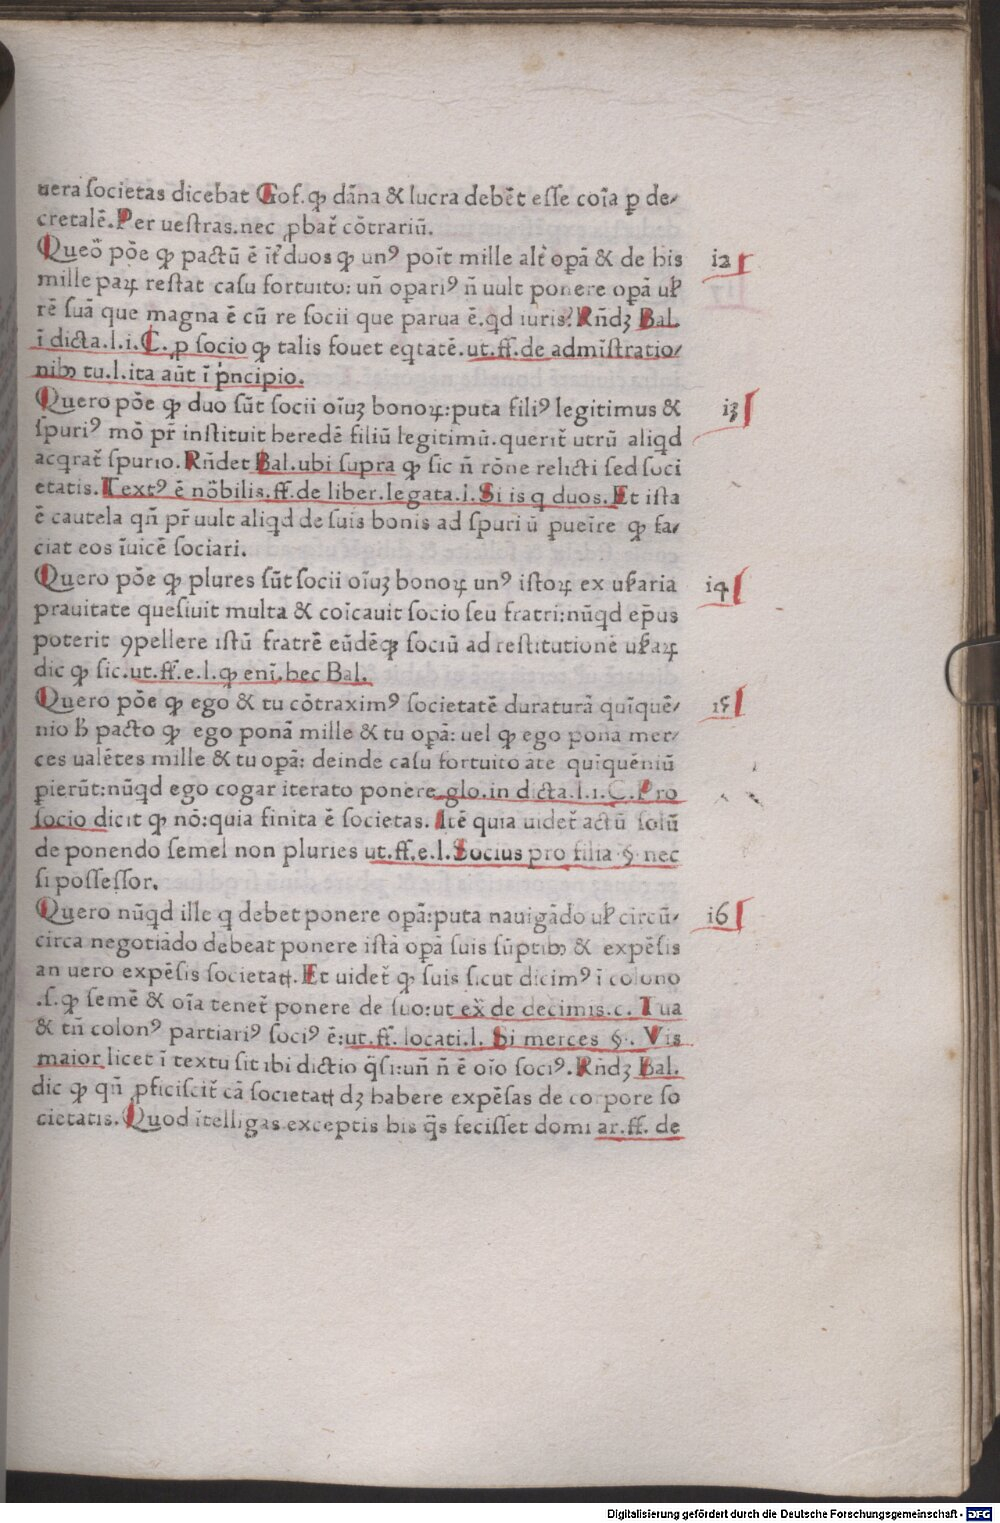 uera societas dicebat Gof. ꝙ dāna & lucra debēt esse coīa ꝑ de⸗
cretalē. Per uestras. nec ꝓbat᷑ cōtrariū.
Queo᷑ pōe ꝙ pactū ē īt᷑ duos ꝙ unꝰ poīt mille alt᷑ oꝑā & de his i2
mille paꝝ restat casu fortuito: un̄ oꝑariꝰ n̄ uult ponere oꝑā uꝉ
rē suā que magna ē cū re socii que parua ē. qd iuris? Rn̄dꝫ Bal.
ī dicta. l. i. C. ꝓ socio ꝙ talis fouet eqtatē. ut. ff. de admīstratio⸗
nibꝫ tu. l. ita aūt ī pncipio.
Quero pōe ꝙ duo sūt socii oīuꝫ bonoꝝ: puta filiꝰ legitimus & i3
spuriꝰ mō pr̄ instituit heredē filiū legitimū. querit᷑ utrū aliqd
acqrat᷑ spurio. Rn̄det Bal. ubi supra ꝙ sic n̄ rōne relicti sed soci
etatis. Textꝰ ē nōbilis. ff. de liber. legata. l. Si is q duos. Et ista
ē cautela qn̄ pr̄ uult aliqd de suis bonis ad spuriū pueīre ꝙ fa⸗
ciat eos īuicē sociari.
Quero pōe ꝙ plures sūt socii oīuꝫ bonoꝝ unꝰ istoꝝ ex uꝉaria i4
prauitate quesiuit multa & coīcauit socio seu fratri: nūqd ep̄us
poterit ꝯpellere istū fratrē eūdēꝙ sociū ad restitutionē uꝉaꝝ
dic ꝙ sic. ut. ff. e. l. ꝙ enī. hec Bal.
Quero pōe ꝙ ego & tu cōtraximꝰ societatē duraturā quīquē⸗ i5
nio ꝉ pacto ꝙ ego ponā mille & tu oꝑā: uel ꝙ ego ponā mer⸗
ces ualētes mille & tu oꝑā: deinde casu fortuito āte quīquēniū
ꝑierūt: nūqd ego cogar iterato ponere glo. in dicta. l. i. C. Pro
socio dicit ꝙ nō: quia finita ē societas. Itē quia uidet᷑ actū solū
de ponendo semel non pluries ut. ff. e. l. Socius pro filia §. nec
si possessor.
Quero nūqd ille q debet ponere oꝑā: puta nauigādo uꝉ circū⸗ i6
circa negotiādo debeat ponere istā oꝑā suis sūptibꝫ & expēsis
an uero expēsis societatꝭ. Et uidet᷑ ꝙ suis sicut dicimꝰ ī colono
.s. ꝙ semē & oīa tenet᷑ ponere de suo: ut ex̄ de decimis. c. Tua
& tn̄ colonꝰ partiariꝰ sociꝰ ē: ut. ff. locati. l. Si merces §. Vis
maior licet ī textu sit ibi dictio q̄si: un̄ n̄ ē oīo sociꝰ. Rn̄dꝫ Bal.
dic ꝙ qn̄ ꝓficiscit᷑ cā societatꝭ dꝫ habere expēsas de corpore so
cietatis. Quod ītelligas exceptis his q̄s fecisset domi ar. ff. de
Digitalisierung gefördert durch die Deutsche Forschungsgemeinschaft - DFG